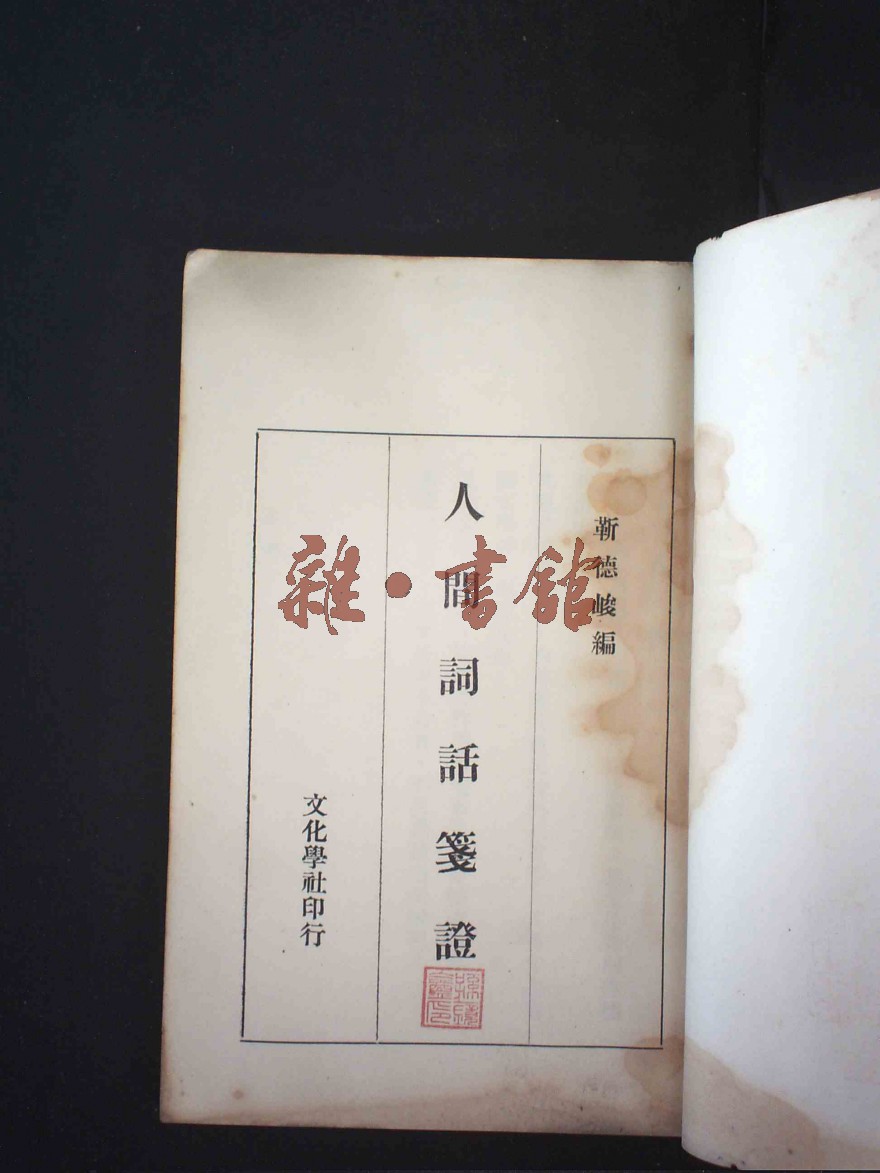 靳德峻編
人間詞話箋證
文化學社印行
雜·書館